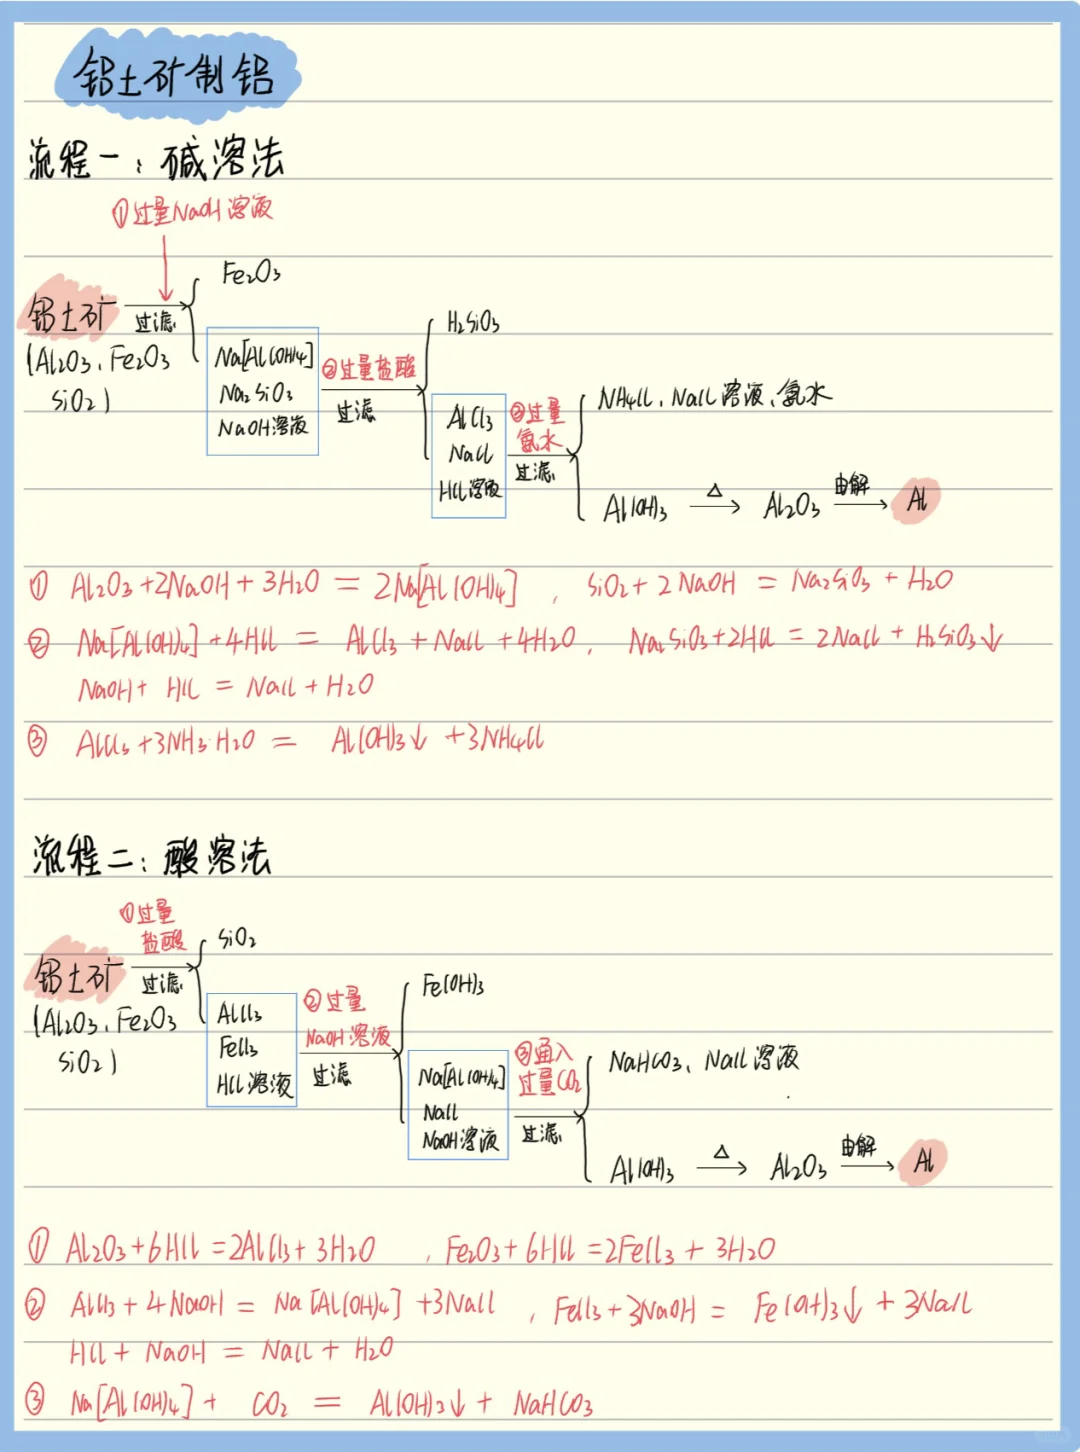 铝土矿制铝
流程一：碱溶法
①过量NaOH溶液
Fe₂O₃
铝土矿
过滤
(Al₂O₃、Fe₂O₃
SiO₂)
Na[Al(OH)₄]
Na₂SiO₃
NaOH溶液
②过量盐酸
过滤
H₂SiO₃
AlCl₃
NaCl
HCl溶液
③过量
氨水
过滤
NH₄Cl、NaCl溶液、氨水
Al(OH)₃ △ Al₂O₃ 电解 Al
① Al₂O₃+2NaOH+3H₂O=2Na[Al(OH)₄] , SiO₂+2NaOH=Na₂SiO₃+H₂O
② Na[Al(OH)₄]+4HCl=AlCl₃+NaCl+4H₂O, Na₂SiO₃+2HCl=2NaCl+H₂SiO₃↓
NaOH+HCl=NaCl+H₂O
③ AlCl₃+3NH₃·H₂O=Al(OH)₃↓+3NH₄Cl
流程二：酸溶法
①过量
盐酸
SiO₂
铝土矿
过滤
(Al₂O₃、Fe₂O₃
SiO₂)
AlCl₃
FeCl₃
HCl溶液
②过量
NaOH溶液
过滤
Fe(OH)₃
Na[Al(OH)₄]
NaCl
NaOH溶液
③通入
过量CO₂
过滤
NaHCO₃、NaCl溶液
Al(OH)₃ △ Al₂O₃ 电解 Al
① Al₂O₃+6HCl=2AlCl₃+3H₂O , Fe₂O₃+6HCl=2FeCl₃+3H₂O
② AlCl₃+4NaOH=Na[Al(OH)₄]+3NaCl , FeCl₃+3NaOH=Fe(OH)₃↓+3NaCl
HCl+NaOH=NaCl+H₂O
③ Na[Al(OH)₄]+CO₂=Al(OH)₃↓+NaHCO₃